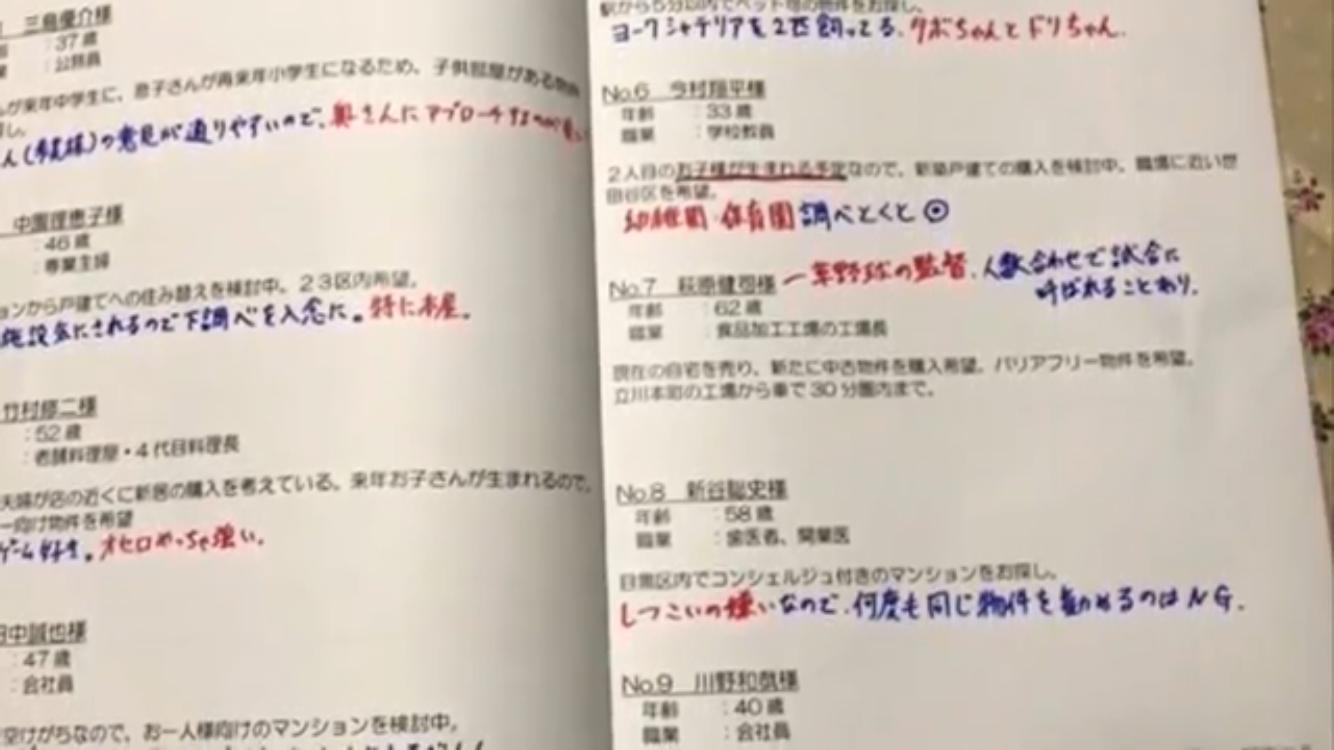 三島優介様
：37歳
：公務員
が来年中学生に、息子さんが再来年小学生になるため、子供部屋がある物件
の意見が通りやすいので、奥さんにアプローチするのが
中園理恵子様
：46歳
：専業主婦
ョンから戸建てへの住み替えを検討中。23区内希望。
施設気にされるので下調べを入念に。特に本屋。
竹村修二様
：52歳
：老舗料理屋・4代目料理長
夫婦が店の近くに新居の購入を考えている。来年お子さんが生まれるので、
ー向け物件を希望
ゲーム好き。オセロめっちゃ強い。
田中誠也様
：47歳
：会社員
空けがちなので、お一人様向けのマンションを検討中。
駅から5分以内でペット可の物件をお探し。
ヨークシャテリアを2匹飼ってる。クボちゃんとドリちゃん。
No.6 今村翔平様
年齢 ：33歳
職業 ：学校教員
2人目のお子様が生まれる予定なので、新築戸建ての購入を検討中。職場に近い世
田谷区を希望。
幼稚園・保育園調べとくと◎
No.7 萩原健司様 ー草野球の監督。人数合わせで試合に
呼ばれることあり。
年齢 ：62歳
職業 ：食品加工工場の工場長
現在の自宅を売り、新たに中古物件を購入希望。バリアフリー物件を希望。
立川本町の工場から車で30分圏内まで。
No.8 新谷聡史様
年齢 ：58歳
職業 ：歯医者、開業医
目黒区内でコンシェルジュ付きのマンションをお探し。
しつこいの嫌いなので、何度も同じ物件を勧めるのはNG.
No.9 川野和哉様
年齢 ：40歳
職業 ：会社員